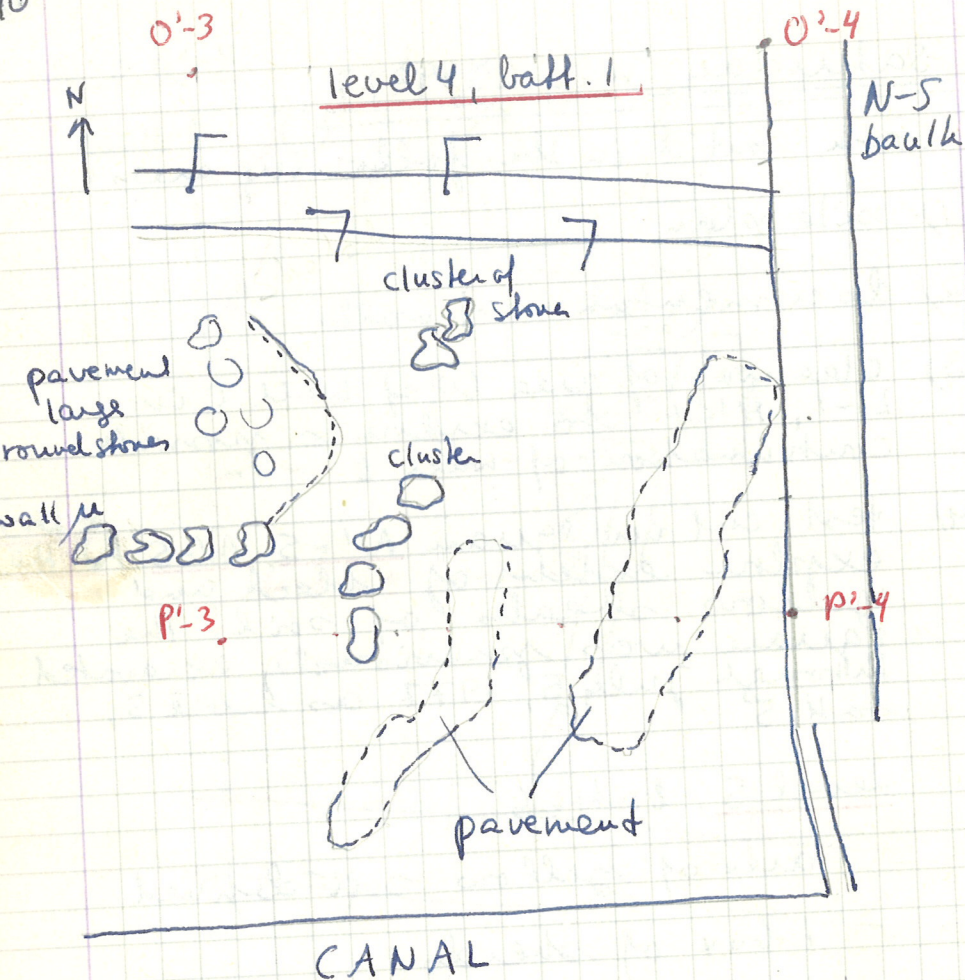 O'-3
O'-4
level 4, batt. 1
N
N-S
baulk
cluster of
stones
pavement
large
round stones
cluster
wall μ
P'-3
P'-4
pavement
CANAL